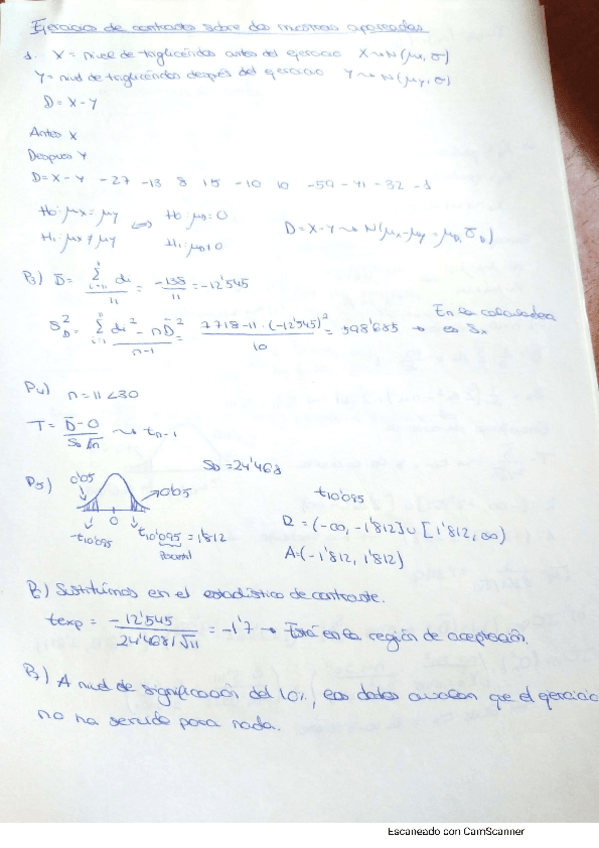 Ejercicios de contraste sobre dos muestras apareadas
1. X = nivel de triglicéridos antes del ejercicio X ~ N(μx, σ)
Y = nivel de triglicéridos después del ejercicio Y ~ N(μy, σ)
D = X - Y
Antes X
Después Y
D = X - Y -27 -13 8 15 -10 10 -59 -41 -32 -1
H0: μx = μy ⟺ H0: μD = 0
H1: μx ≠ μy H1: μD ≠ 0
D = X - Y ~ N(μx - μy = μD, σD)
P3) D̄ = Σ di / 11 = -138 / 11 = -12'545
S²D = Σ di² - nD̄² / n-1 = 7718 - 11 · (-12'545)² / 10 = 598'685 → En la calculadora es Sx
P4) n = 11 < 30
T = D̄ - 0 / SD/√n ~ tn-1
SD = 24'468
P5) 0'05 0'05
-t10'095 0 t10'095 = 1'812
t10'095
R = (-∞, -1'812] ∪ [1'812, ∞)
A = (-1'812, 1'812)
P6) Sustituimos en el estadístico de contraste.
texp = -12'545 / 24'468/√11 = -1'7 → Está en la región de aceptación.
P7) A nivel de significación del 10%, los datos avalan que el ejercicio
no ha servido para nada.
Escaneado con CamScanner